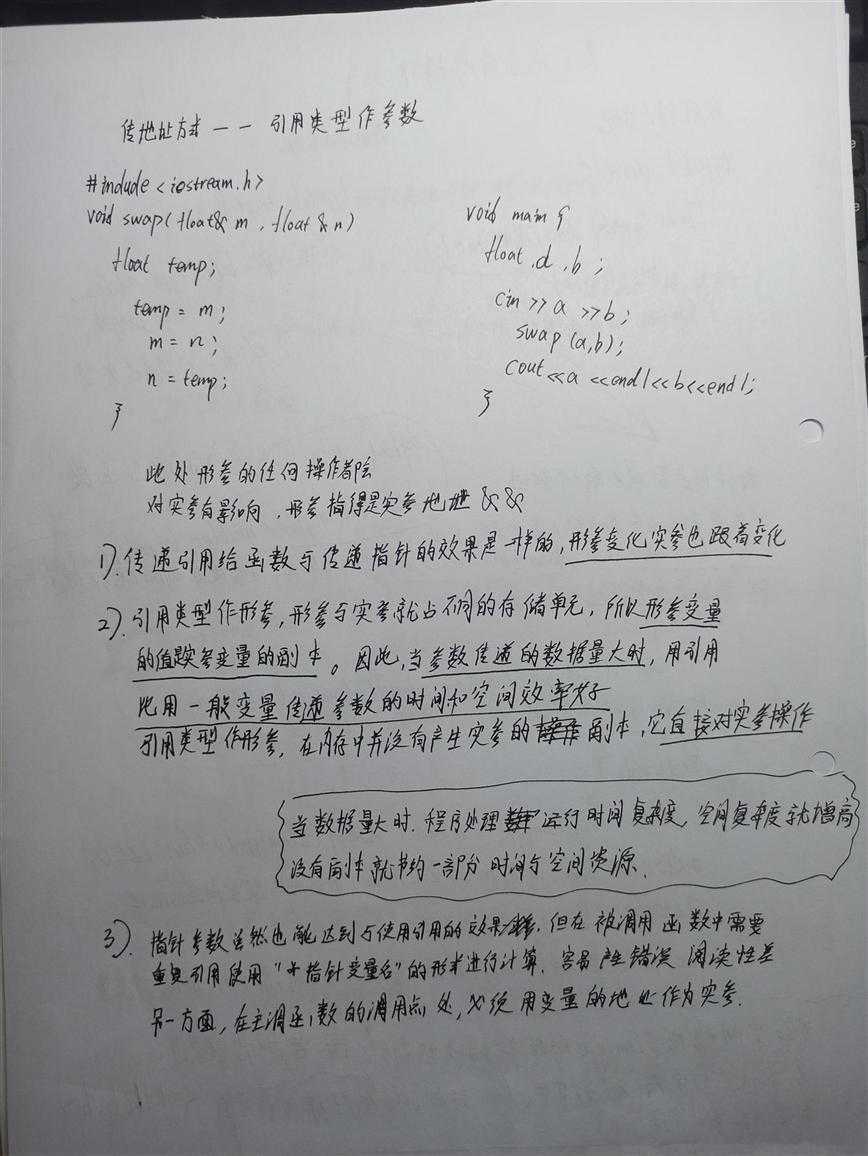 传地址方式 —— 引用类型作参数
#include <iostream.h>
void swap( float& m , float & n )
float temp;
temp = m ;
m = n ;
n = temp;
}
void main {
float , d , b ;
cin >> a >> b ;
swap (a,b) ;
cout << a << endl << b << endl ;
}
此处形参的任何操作都会
对实参有影响 , 形参指得是实参地址 &&
1). 传递引用给函数与传递指针的效果是一样的, 形参变化实参也跟着变化
2). 引用类型作形参, 形参与实参就占不同的存储单元, 所以形参变量
的值是实参变量的副本 。因此, 当参数传递的数据量大时, 用引用
比用一般变量传递参数的时间和空间效率好
引用类型作形参, 在内存中并没有产生实参的副本, 它直接对实参操作
当数据量大时. 程序处理运行时间复杂度, 空间复杂度就增高
没有副本就节约一部分时间与空间资源.
3). 指针参数虽然也能达到与使用引用的效果. 但在被调用函数中需要
重复引用使用 "*指针变量名" 的形式进行计算. 容易产生错误 阅读性差
另一方面, 在主调函数的调用点处, 必须用变量的地址作为实参.